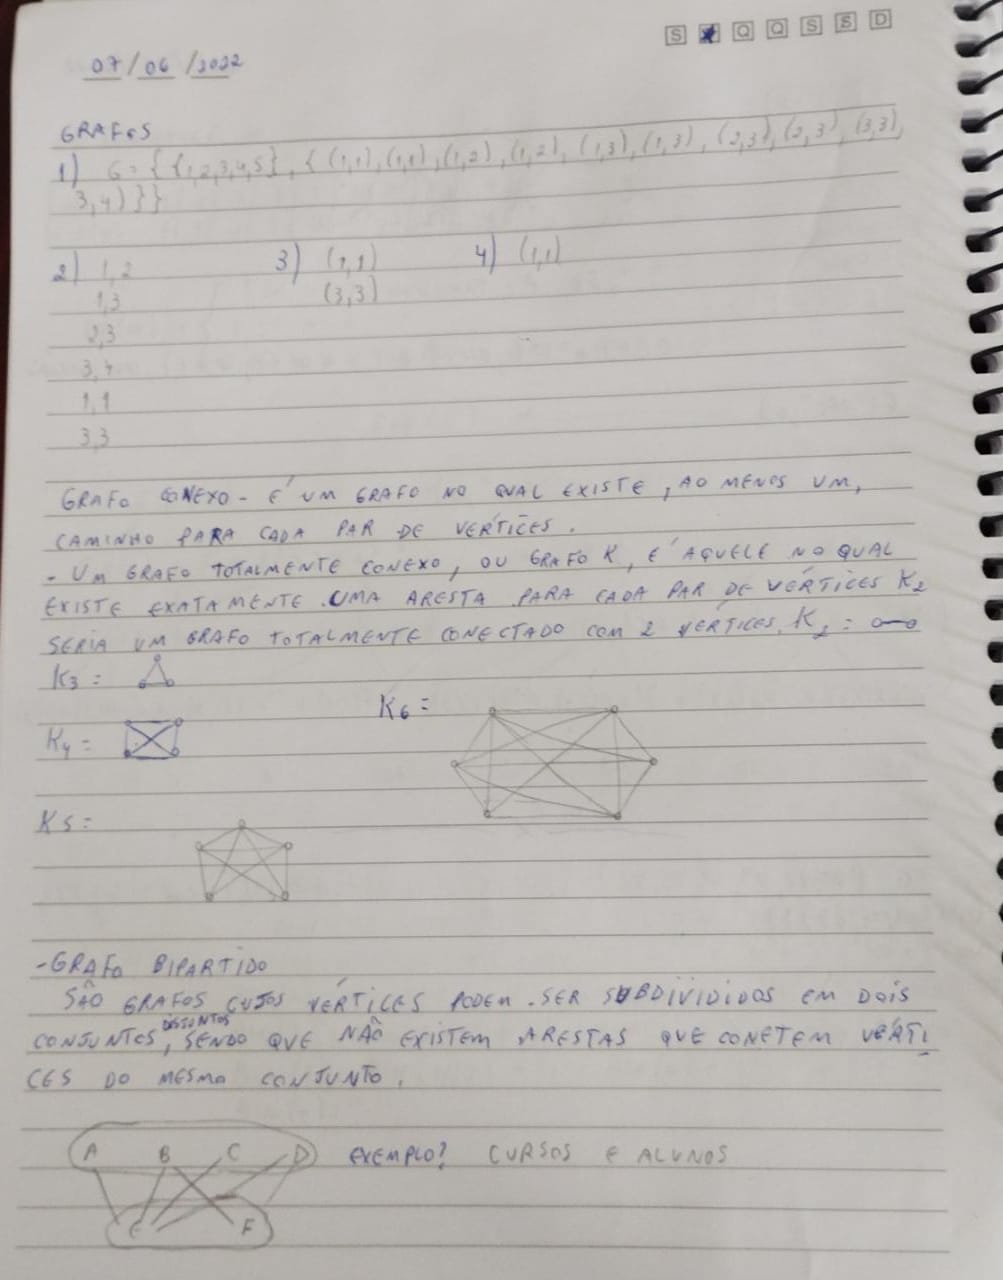 S Q Q S S D
07/06/2022
GRAFOS
1) G = { {1,2,3,4,5}, { (1,1), (1,1), (1,2), (1,2), (1,3), (1,3), (2,3), (2,3), (3,3),
3,4) }}
2) 1,2 3) (1,1) 4) (1,1)
1,3 (3,3)
2,3
3,4
1,1
3,3
GRAFO CONEXO - É UM GRAFO NO QUAL EXISTE, AO MENOS UM,
CAMINHO PARA CADA PAR DE VÉRTICES.
- UM GRAFO TOTALMENTE CONEXO, OU GRAFO K, É AQUELE NO QUAL
EXISTE EXATAMENTE UMA ARESTA PARA CADA PAR DE VÉRTICES K2
SERIA UM GRAFO TOTALMENTE CONECTADO COM 2 VÉRTICES. K2 =
K3 =
K6 =
K4 =
K5 =
- GRAFO BIPARTIDO
SÃO GRAFOS CUJOS VÉRTICES PODEM SER SUBDIVIDIDOS EM DOIS
CONJUNTOS DISJUNTOS, SENDO QUE NÃO EXISTEM ARESTAS QUE CONETEM VÉRTI
CES DO MESMO CONJUNTO.
A B C D EXEMPLO? CURSOS E ALUNOS
E F